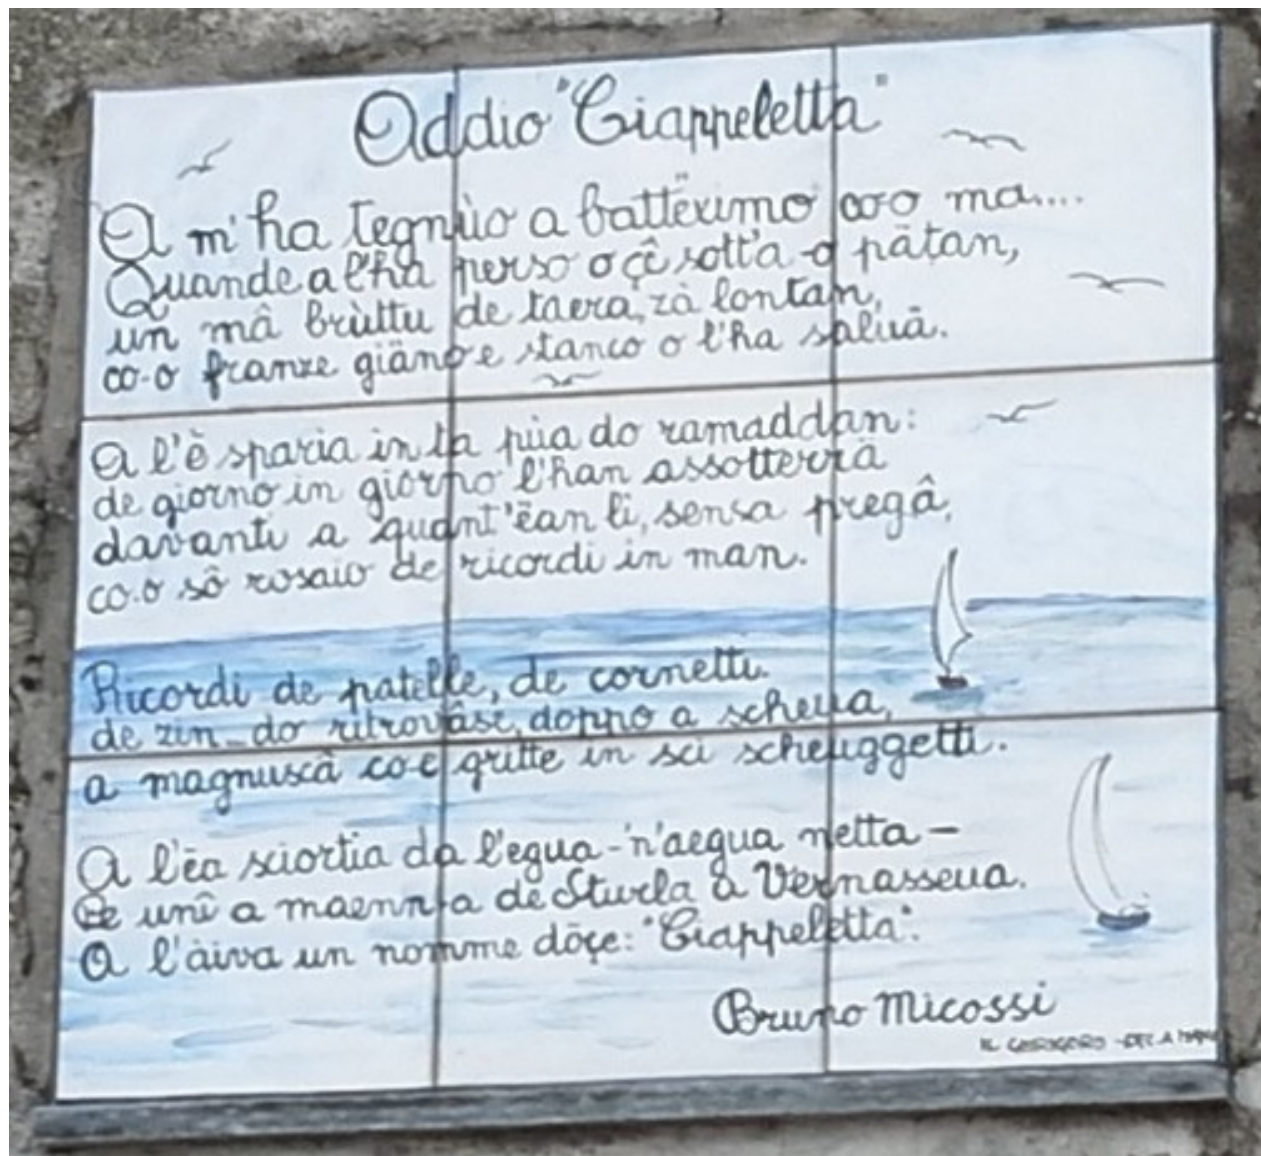 Addio "Ciappeletta"
A m'ha tegnùo a battëximo ... ma....
Quande a l'ha perso o çê sott'a-o pätan,
un mâ brùttu de taera, zà lontan,
co-o franze giäno e stanco o l'ha salùä.
A l'è sparia in ta pùa do ramaddan:
de giorno in giorno l'han assotterrä
davanti a quant'ëan li, sensa pregâ,
co-o sô rosaio de ricordi in man.
Ricordi de patelle, de cornetti.
de zin_do ritrovâse, doppo a scheua,
a magnuscâ co-e gritte in sci scheuggetti.
A l'ëa sciortia da l'egua-'n'aegua netta-
Pe unî a maenn-a de Sturla a Vernasseua.
A l'àiva un nomme dôçe: "Ciappeletta".
Bruno Micossi
IL